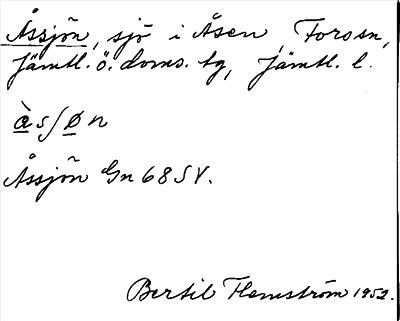 Åssjön, sjö i Åsen, Forssn,
Jämtl. ö. doms. tg, Jämtl. l.
à s ʃ ø n
Åssjön Gn 68 SV.
Bertil Flemström 1952.